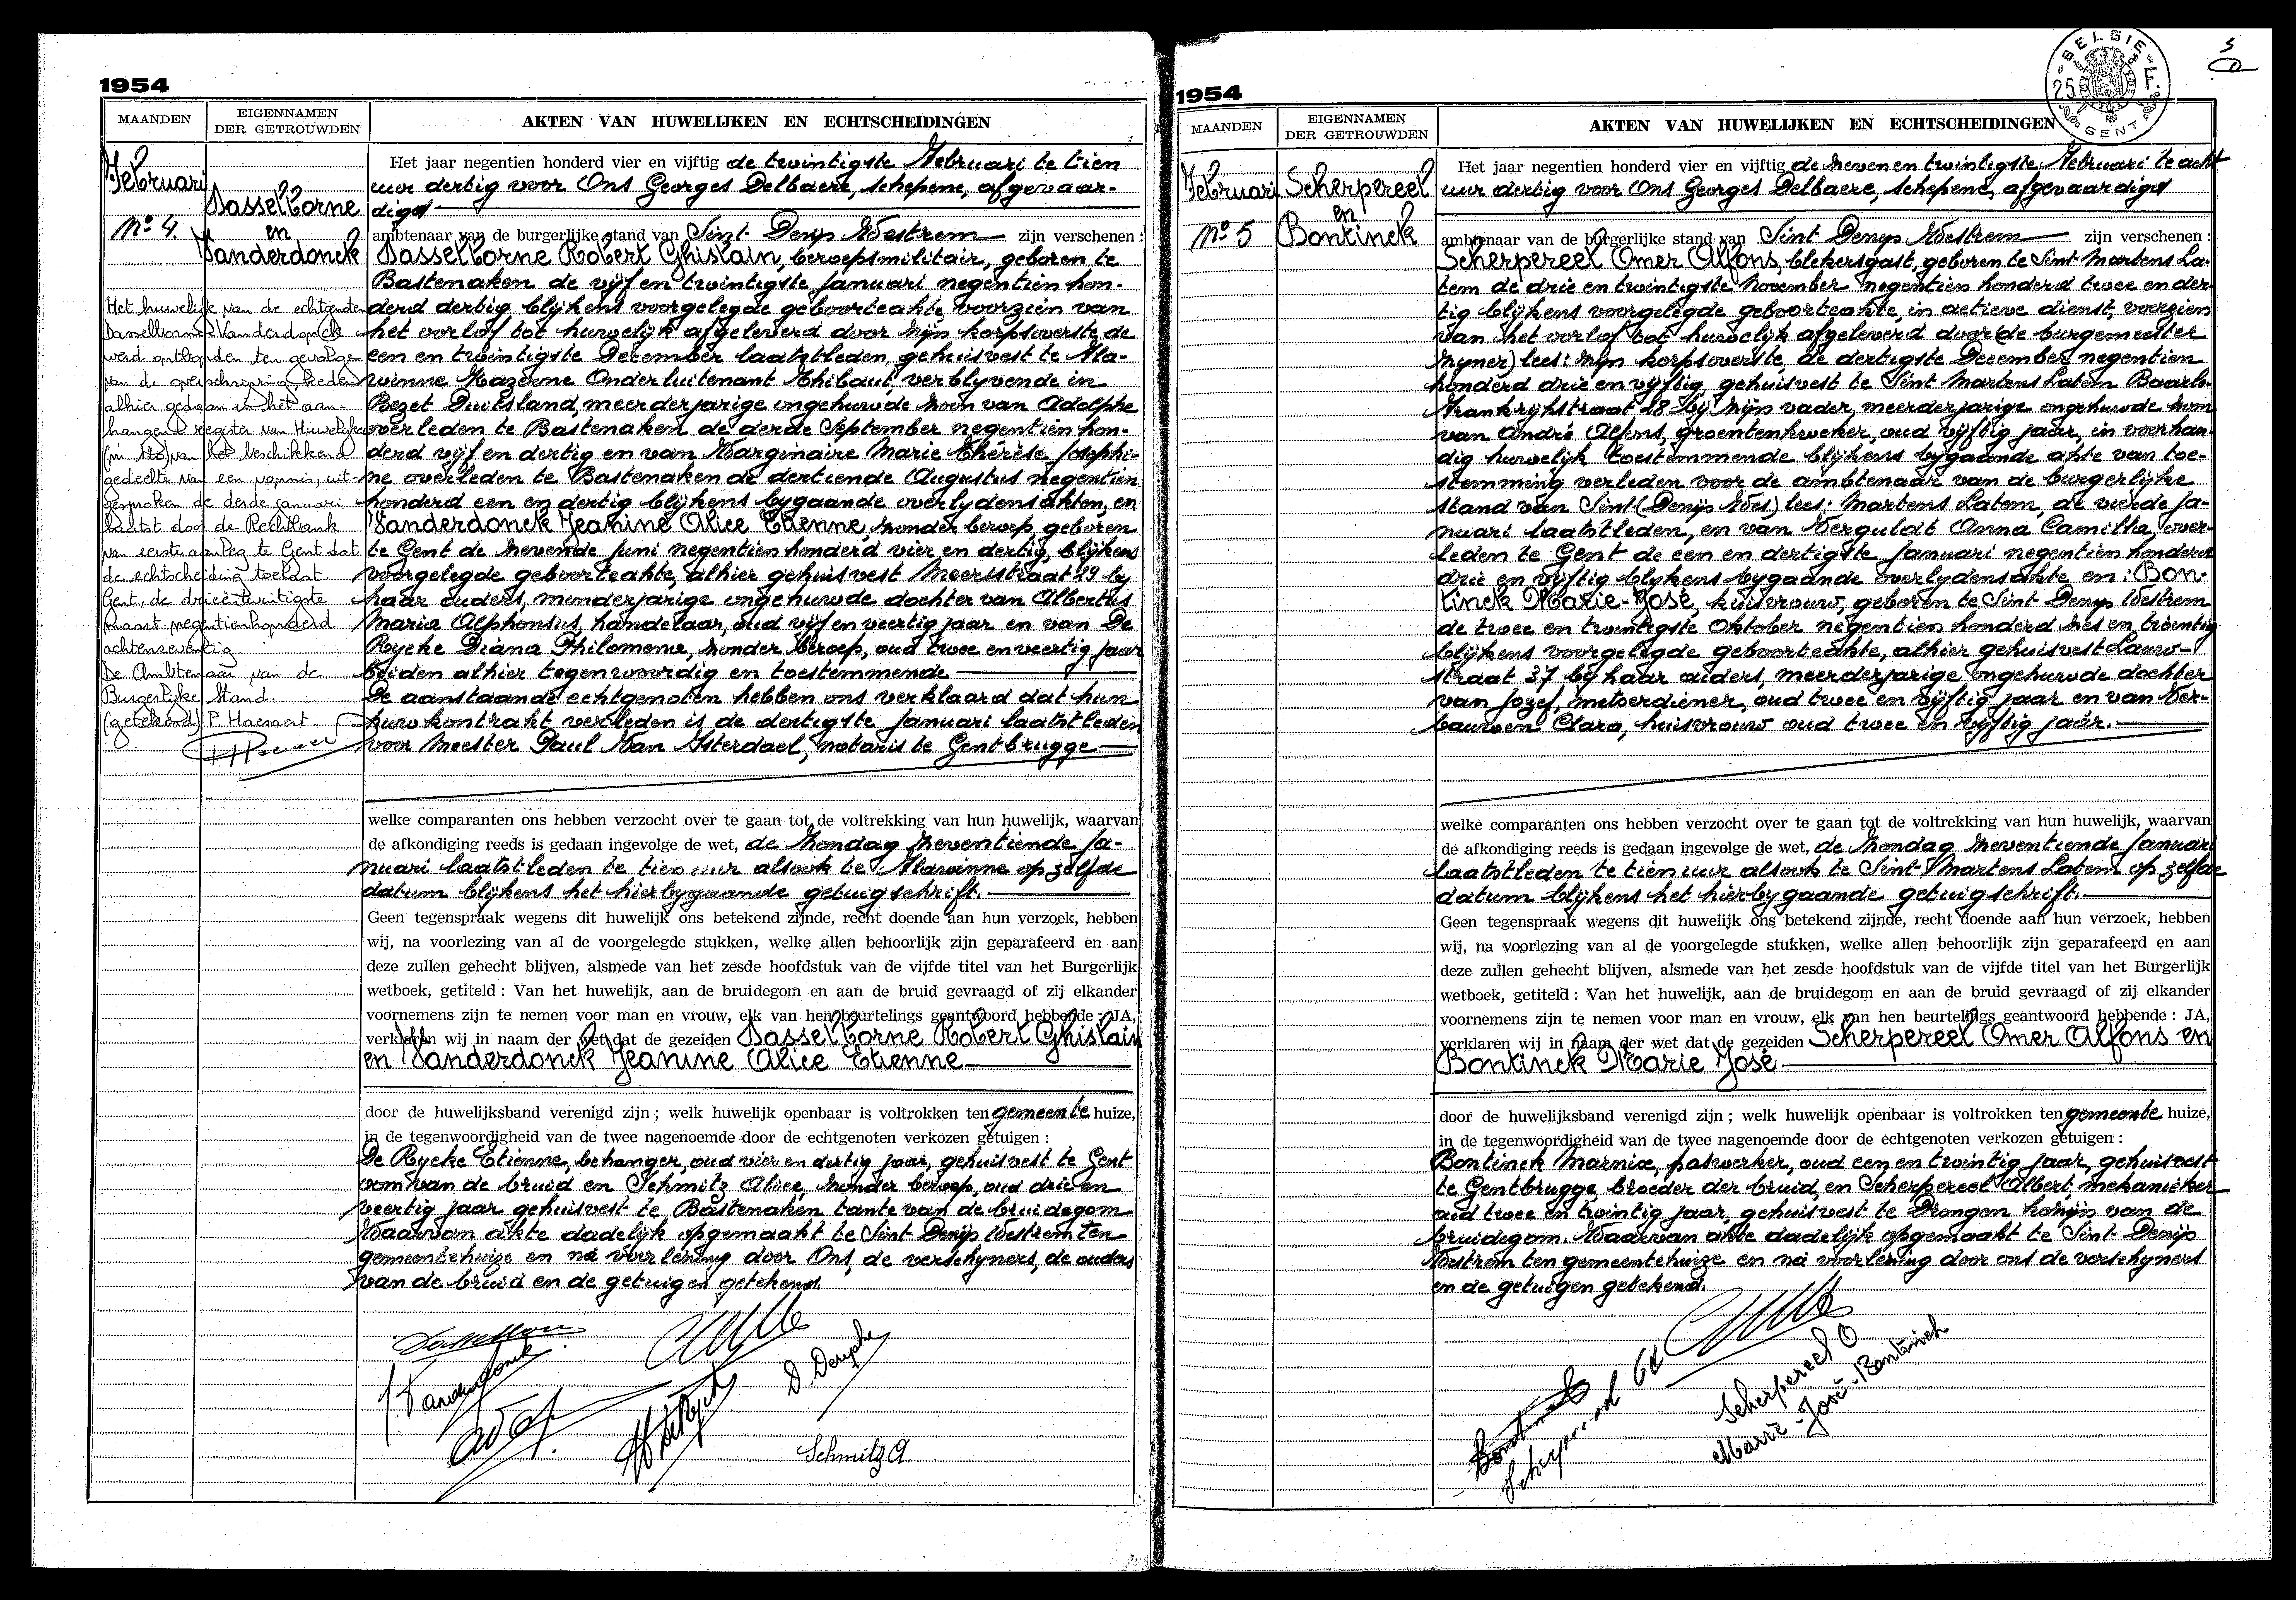 1954
MAANDEN
EIGENNAMEN
DER GETROUWDEN
AKTEN VAN HUWELIJKEN EN ECHTSCHEIDINGEN
Februari
No 4.
Dasselborne
en
Vanderdonck
Het huwelijk van de echtgenoten
Dasselborne Vanderdonck
werd ontbonden ten gevolge
van de overschrijving heden
alhier gedaan in het aan-
hangend register van Huwelijken
van het beschikkend
gedeelte van een vonnis, uit-
gesproken de derde januari
laatst door de Rechtbank
van eerste aanleg te Gent dat
de echtscheiding toelaat.
Gent, de drieëntwintigste
maart negentienhonderd
achtenzeventig
De Ambtenaar van de
Burgerlijke Stand.
(getekend) P. Haesaert.
Het jaar negentien honderd vier en vijftig de twintigste Februari te tien
uur dertig voor Ons Georges Delbaere, schepene, afgevaar-
digd
ambtenaar van de burgerlijke stand van Sint Denijs Westrem zijn verschenen :
Dasselborne Robert Ghislain, beroepsmilitair, geboren te
Bastenaken de vijf en twintigste Januari negentien hon-
derd dertig blijkens voorgelegde geboorteakte voorzien van
het verlof tot huwelijk afgeleverd door zijn korpsoverste de
een en twintigste December laatstleden, gehuisvest te Fla-
winne Kazerne Onderluitenant Thibaut, verblijvende in
Bezet Duitsland, meerderjarige ongehuwde zoon van Adolphe
overleden te Bastenaken de derde September negentien hon-
derd vijf en dertig en van Marginaire Marie Thérèse Josephi-
ne overleden te Bastenaken de dertiende Augustus negentien
honderd een en dertig blijkens bijgaande overlijdensakten, en
Vanderdonck Jeanine Alice Etienne, zonder beroep, geboren
te Gent de zevende Juni negentien honderd vier en dertig, blijkens
voorgelegde geboorteakte, alhier gehuisvest Meersstraat 29 bij
haar ouders, minderjarige ongehuwde dochter van Albertus
Maria Alphonsus, handelaar, oud vijf en veertig jaar en van De
Rycke Diana Philomena, zonder beroep, oud twee en veertig jaar
beiden alhier tegenwoordig en toestemmende
De aanstaande echtgenoten hebben ons verklaard dat hun
huwkontrakt verleden is de dertigste Januari laatstleden
voor Meester Paul Van Isterdael, notaris te Gentbrugge
welke comparanten ons hebben verzocht over te gaan tot de voltrekking van hun huwelijk, waarvan
de afkondiging reeds is gedaan ingevolge de wet, de Zondag zeventiende Ja-
nuari laatstleden te tien uur alsook te Flawinne op zelfde
datum blijkens het hierbijgaande getuigschrift.
Geen tegenspraak wegens dit huwelijk ons betekend zijnde, recht doende aan hun verzoek, hebben
wij, na voorlezing van al de voorgelegde stukken, welke allen behoorlijk zijn geparafeerd en aan
deze zullen gehecht blijven, alsmede van het zesde hoofdstuk van de vijfde titel van het Burgerlijk
wetboek, getiteld : Van het huwelijk, aan de bruidegom en aan de bruid gevraagd of zij elkander
voornemens zijn te nemen voor man en vrouw, elk van hen beurtelings geantwoord hebbende : JA,
verklaren wij in naam der wet dat de gezeiden Dasselborne Robert Ghislain
en Vanderdonck Jeanine Alice Etienne
door de huwelijksband verenigd zijn ; welk huwelijk openbaar is voltrokken ten gemeente huize,
in de tegenwoordigheid van de twee nagenoemde door de echtgenoten verkozen getuigen :
De Rycke Etienne, behanger, oud vier en dertig jaar, gehuisvest te Gent
oom van de bruid en Schmitz Alice, zonder beroep, oud drie en
veertig jaar gehuisvest te Bastenaken tante van de bruidegom
Waarvan akte dadelijk opgemaakt te Sint Denijs Westrem ten
gemeentehuize en na voorlezing door Ons, de verschijners, de ouders
van de bruid en de getuigen getekend.
J. Vanderdonck
Schmitz A.
1954
BELGIE
25 F.
GENT
MAANDEN
EIGENNAMEN
DER GETROUWDEN
AKTEN VAN HUWELIJKEN EN ECHTSCHEIDINGEN
Februari
No 5
Scherpereel
en
Bontinck
Het jaar negentien honderd vier en vijftig de zeven en twintigste Februari te acht
uur dertig voor Ons Georges Delbaere, schepene, afgevaardigd
ambtenaar van de burgerlijke stand van Sint Denijs Westrem zijn verschenen :
Scherpereel Omer Alfons, blekersgast, geboren te Sint Martens La-
tem de drie en twintigste November negentien honderd twee en der-
tig blijkens voorgelegde geboorteakte, in actieve dienst, voorzien
van het verlof tot huwelijk afgeleverd door (de burgemeester
zijner) lees: zijn korpsoverste, de dertigste December negentien
honderd drie en vijftig, gehuisvest te Sint Martens Latem Baarle-
Frankrijkstraat 28 bij zijn vader, meerderjarige ongehuwde zoon
van André Alfons, groentenkweker, oud vijftig jaar, in voorhan-
dig huwelijk toestemmende blijkens bijgaande akte van toe-
stemming verleden voor de ambtenaar van de burgerlijke
stand van Sint (Denijs Wes) lees: Martens Latem, de vierde Ja-
nuari laatstleden, en van Verguldt Anna Camilla, over-
leden te Gent de een en dertigste Januari negentien honderd
drie en vijftig blijkens bijgaande overlijdensakte en: Bon-
tinck Marie-José, huisvrouw, geboren te Sint Denijs Westrem
de twee en twintigste Oktober negentien honderd zes en twintig
blijkens voorgelegde geboorteakte, alhier gehuisvest Lauw-
straat 37 bij haar ouders, meerderjarige ongehuwde dochter
van Jozef, metserdiener, oud twee en vijftig jaar en van Ver-
bauwen Clara, huisvrouw oud twee en vijftig jaar.
welke comparanten ons hebben verzocht over te gaan tot de voltrekking van hun huwelijk, waarvan
de afkondiging reeds is gedaan ingevolge de wet, de Zondag zeventiende Januari
laatstleden te tien uur alsook te Sint Martens Latem op zelfde
datum blijkens het hierbijgaande getuigschrift.
Geen tegenspraak wegens dit huwelijk ons betekend zijnde, recht doende aan hun verzoek, hebben
wij, na voorlezing van al de voorgelegde stukken, welke allen behoorlijk zijn geparafeerd en aan
deze zullen gehecht blijven, alsmede van het zesde hoofdstuk van de vijfde titel van het Burgerlijk
wetboek, getiteld : Van het huwelijk, aan de bruidegom en aan de bruid gevraagd of zij elkander
voornemens zijn te nemen voor man en vrouw, elk van hen beurtelings geantwoord hebbende : JA,
verklaren wij in naam der wet dat de gezeiden Scherpereel Omer Alfons en
Bontinck Marie José
door de huwelijksband verenigd zijn ; welk huwelijk openbaar is voltrokken ten gemeente huize,
in de tegenwoordigheid van de twee nagenoemde door de echtgenoten verkozen getuigen :
Bontinck Marnix, paswerker, oud een en twintig jaar, gehuisvest
te Gentbrugge, broeder der bruid, en Scherpereel Albert, mekanieker
oud twee en twintig jaar, gehuisvest te Drongen kozijn van de
bruidegom. Waarvan akte dadelijk opgemaakt te Sint Denijs
Westrem ten gemeentehuize en na voorlezing door ons de verschijners
en de getuigen getekend.
Scherpereel O
Marie-José Bontinck